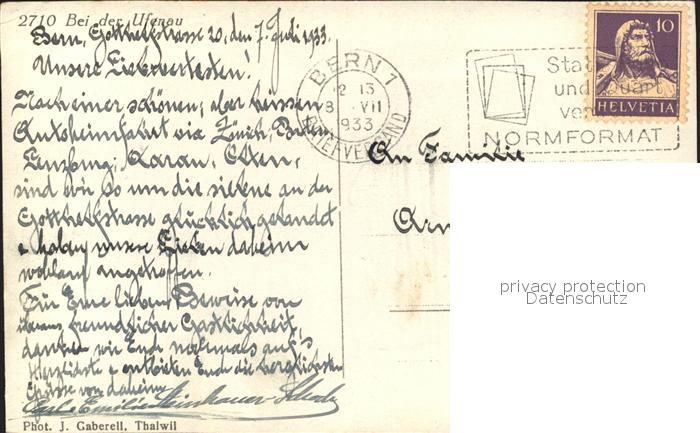 2710 Bei der Ufenau
Bern, Gotthelfstrasse 20, den 7. Juli 1933.
Unsere Liebwertesten!
Nach einer schönen, aber heissen
Autoheimfahrt via Zürich, Baden
Lenzburg, Aarau, Olten,
sind wir so um die siebene an der
Gotthelfstrasse glücklich gelandet
& haben unsere Lieben daheim
wohlauf angetroffen.
Für Eure lieben Beweise von
überaus freundlicher Gastlichkeit,
danken wir Euch nochmals aufs
Herzlichste & entbieten Euch die herzlichsten
Grüsse von daheim
Emilie Steinhauer
Phot. J. Gaberell, Thalwil
BERN 1
13
VII
1933
BRIEFVERSAND
Stat
und Quart
ver
NORMFORMAT
10
HELVETIA
An Familie
Arn
privacy protection
Datenschutz